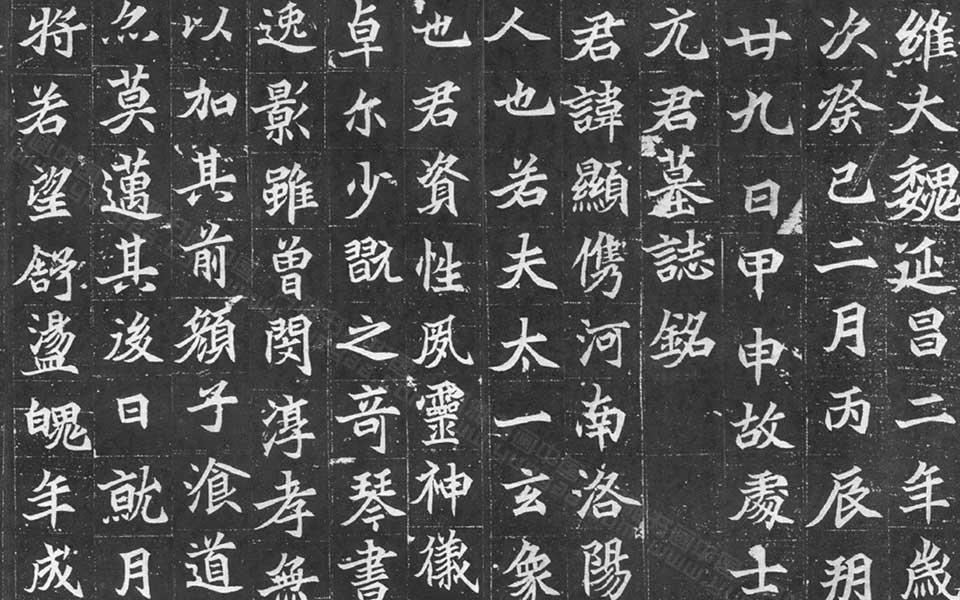 維大魏延昌二年歲
次癸巳二月丙辰朔
廿九日甲申故處士
元君墓誌銘
君諱顯儁河南洛陽
人也若夫太一玄象
也君資性夙靈神儀
卓尒少翫之奇琴書
逸影雖曾閔淳孝無
以加其前顏子湌道
亦莫邁其後日就月
将若望舒盪魄年成